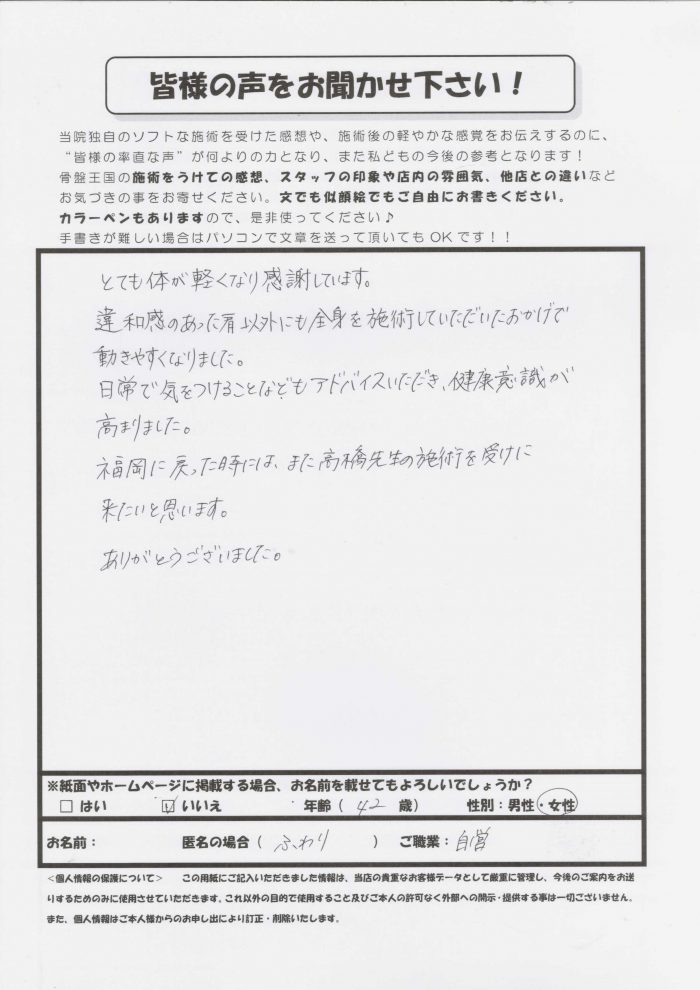 皆様の声をお聞かせ下さい！
当院独自のソフトな施術を受けた感想や、施術後の軽やかな感覚をお伝えするのに、
“皆様の率直な声”が何よりの力となり、また私どもの今後の参考となります！
骨盤王国の施術をうけての感想、スタッフの印象や店内の雰囲気、他店との違いなど
お気づきの事をお寄せください。文でも似顔絵でもご自由にお書きください。
カラーペンもありますので、是非使ってください♪
手書きが難しい場合はパソコンで文章を送って頂いてもOKです！！
とても体が軽くなり感謝しています。
違和感のあった肩以外にも全身を施術していただいたおかげで
動きやすくなりました。
日常で気をつけることなどもアドバイスいただき、健康意識が
高まりました。
福岡に戻った時には、また高橋先生の施術を受けに
来たいと思います。
ありがとうございました。
※紙面やホームページに掲載する場合、お名前を載せてもよろしいでしょうか？
□ はい ☑ いいえ 年齢（ 42 歳） 性別：男性・女性
お名前： 匿名の場合（ ふわり ） ご職業：自営
＜個人情報の保護について＞ この用紙にご記入いただきました情報は、当店の貴重なお客様データとして厳重に管理し、今後のご案内をお送
りするためのみに使用させていただきます。これ以外の目的で使用すること及びご本人の許可なく外部への開示・提供する事は一切ございません。
また、個人情報はご本人様からのお申し出により訂正・削除いたします。